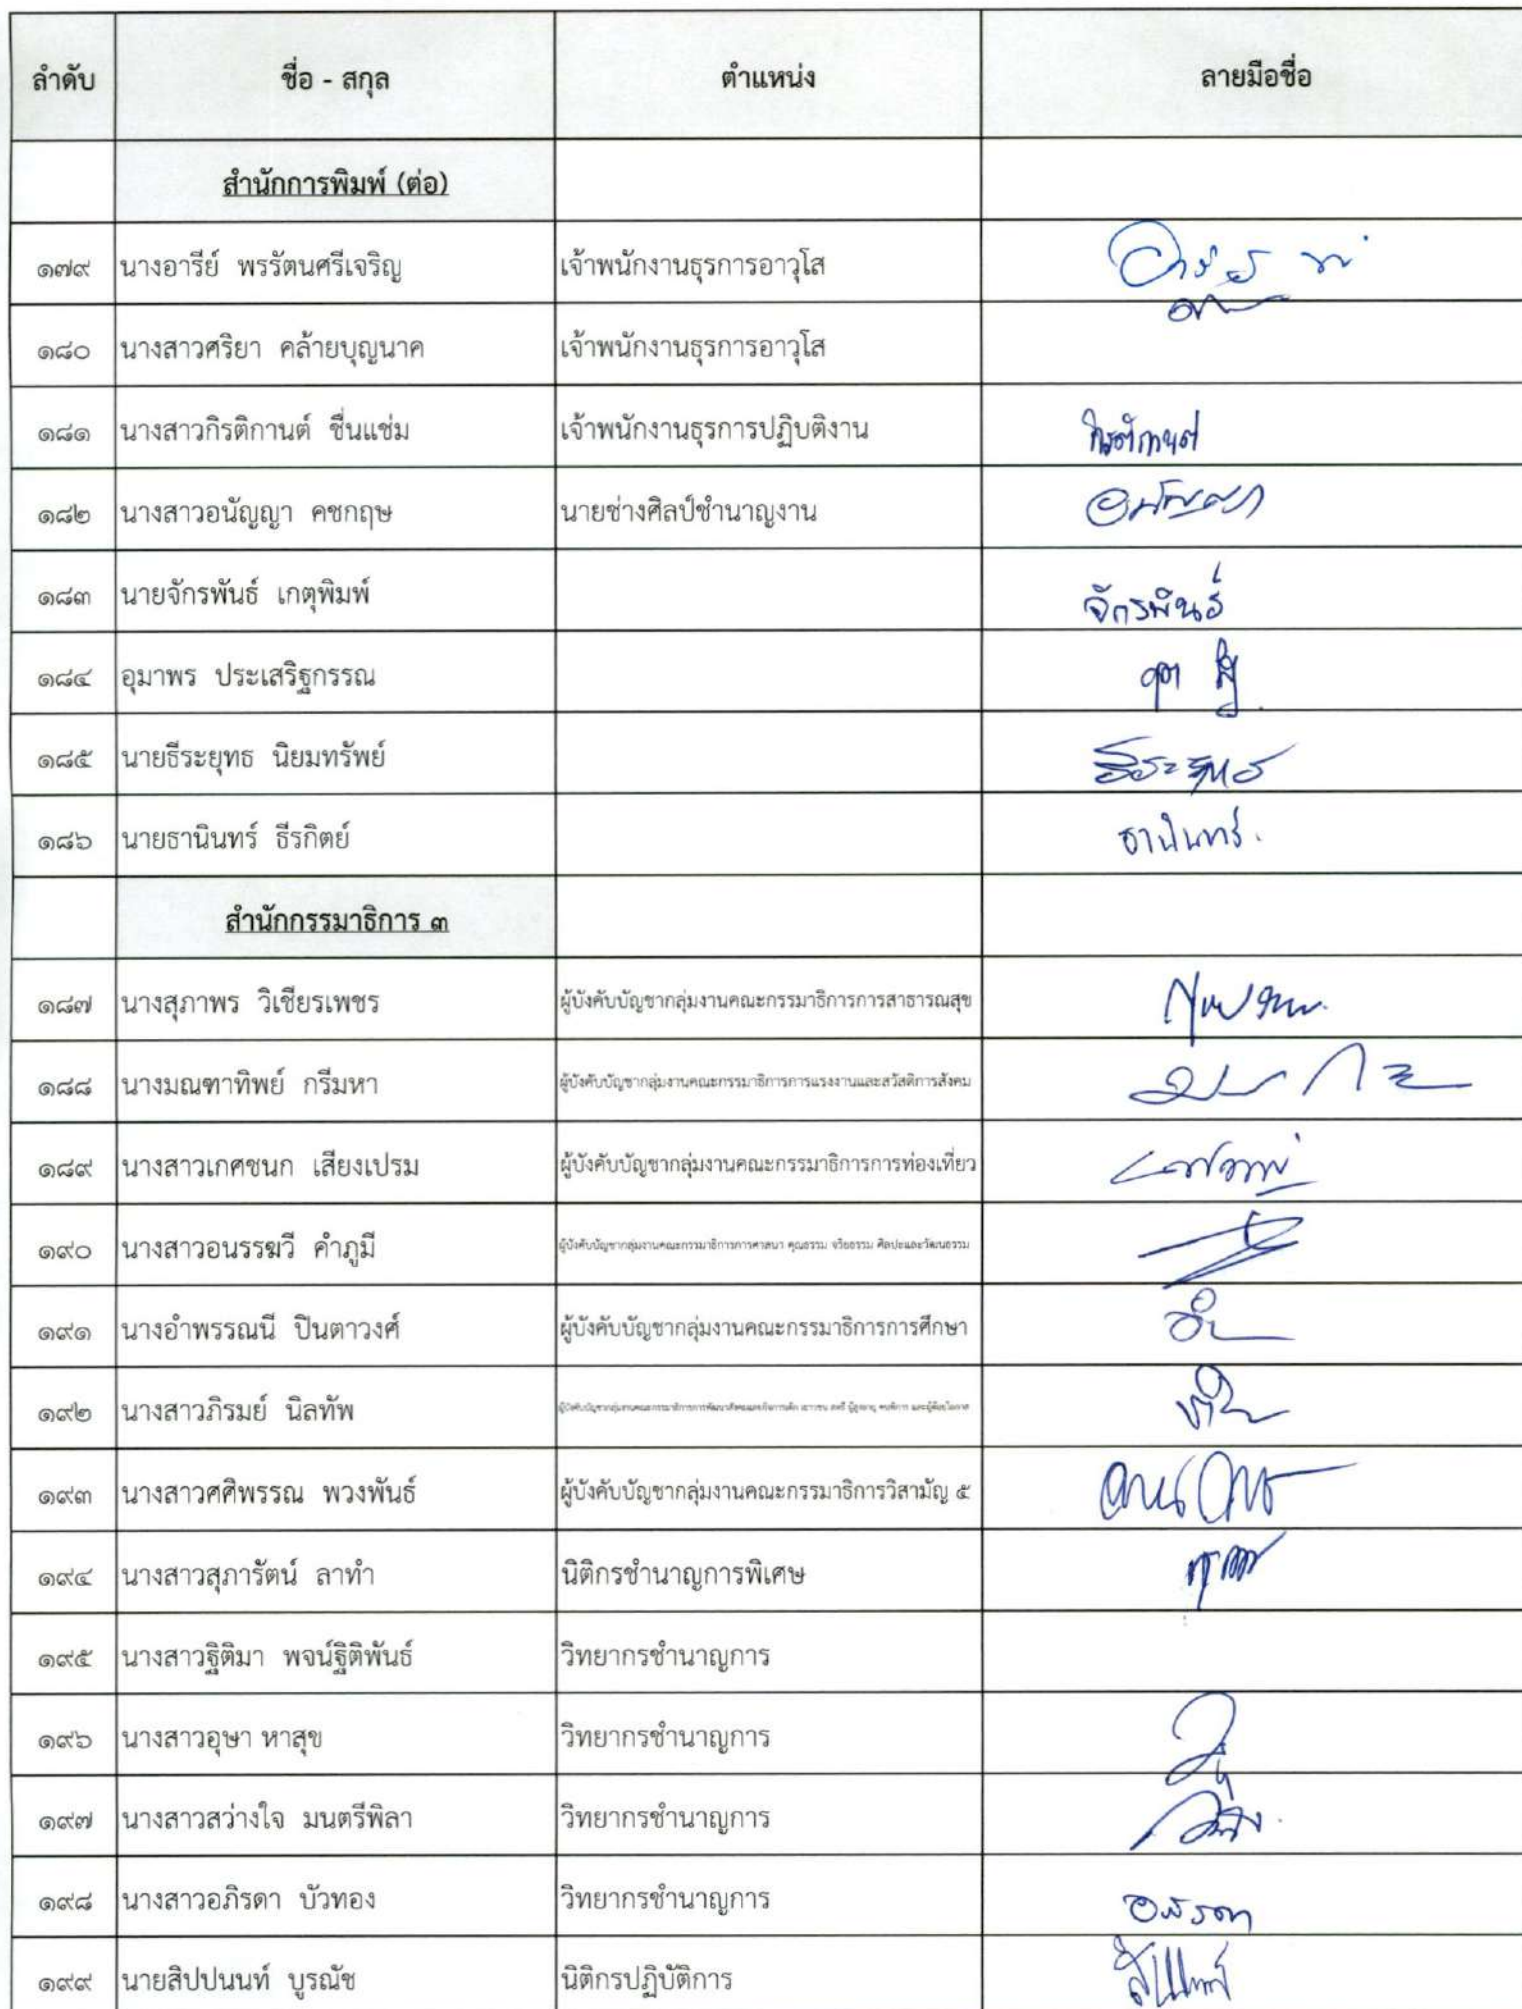 ลำดับ ชื่อ - สกุล ตำแหน่ง ลายมือชื่อ
สำนักการพิมพ์ (ต่อ)
๑๗๙ นางอารีย์ พรรัตนศรีเจริญ เจ้าพนักงานธุรการอาวุโส
๑๘๐ นางสาวศริยา คล้ายบุญนาค เจ้าพนักงานธุรการอาวุโส
๑๘๑ นางสาวกิรติกานต์ ชื่นแช่ม เจ้าพนักงานธุรการปฏิบติงาน กิรติกานต์
๑๘๒ นางสาวอนัญญา คชกฤษ นายช่างศิลป์ชำนาญงาน อนัญญา
๑๘๓ นายจักรพันธ์ เกตุพิมพ์ จักรพันธ์
๑๘๔ อุมาพร ประเสริฐกรรณ
๑๘๕ นายธีระยุทธ นิยมทรัพย์ ธีระยุทธ
๑๘๖ นายธานินทร์ ธีรกิตย์ ธานินทร์
สำนักกรรมาธิการ ๓
๑๘๗ นางสุภาพร วิเชียรเพชร ผู้บังคับบัญชากลุ่มงานคณะกรรมาธิการการสาธารณสุข
๑๘๘ นางมณฑาทิพย์ กรีมหา ผู้บังคับบัญชากลุ่มงานคณะกรรมาธิการการแรงงานและสวัสดิการสังคม
๑๘๙ นางสาวเกศชนก เสียงเปรม ผู้บังคับบัญชากลุ่มงานคณะกรรมาธิการการท่องเที่ยว
๑๙๐ นางสาวอนรรฆวี คำภูมี ผู้บังคับบัญชากลุ่มงานคณะกรรมาธิการการศาสนา คุณธรรม จริยธรรม ศิลปะและวัฒนธรรม
๑๙๑ นางอำพรรณนี ปินตาวงศ์ ผู้บังคับบัญชากลุ่มงานคณะกรรมาธิการการศึกษา
๑๙๒ นางสาวภิรมย์ นิลทัพ ผู้บังคับบัญชากลุ่มงานคณะกรรมาธิการการพัฒนาสังคมและกิจการเด็ก เยาวชน สตรี ผู้สูงอายุ คนพิการ และผู้ด้อยโอกาส
๑๙๓ นางสาวศศิพรรณ พวงพันธ์ ผู้บังคับบัญชากลุ่มงานคณะกรรมาธิการวิสามัญ ๕
๑๙๔ นางสาวสุภารัตน์ ลาทำ นิติกรชำนาญการพิเศษ
๑๙๕ นางสาวฐิติมา พจน์ฐิติพันธ์ วิทยากรชำนาญการ
๑๙๖ นางสาวอุษา หาสุข วิทยากรชำนาญการ
๑๙๗ นางสาวสว่างใจ มนตรีพิลา วิทยากรชำนาญการ
๑๙๘ นางสาวอภิรดา บัวทอง วิทยากรชำนาญการ อภิรดา
๑๙๙ นายสิปปนนท์ บูรณัช นิติกรปฏิบัติการ